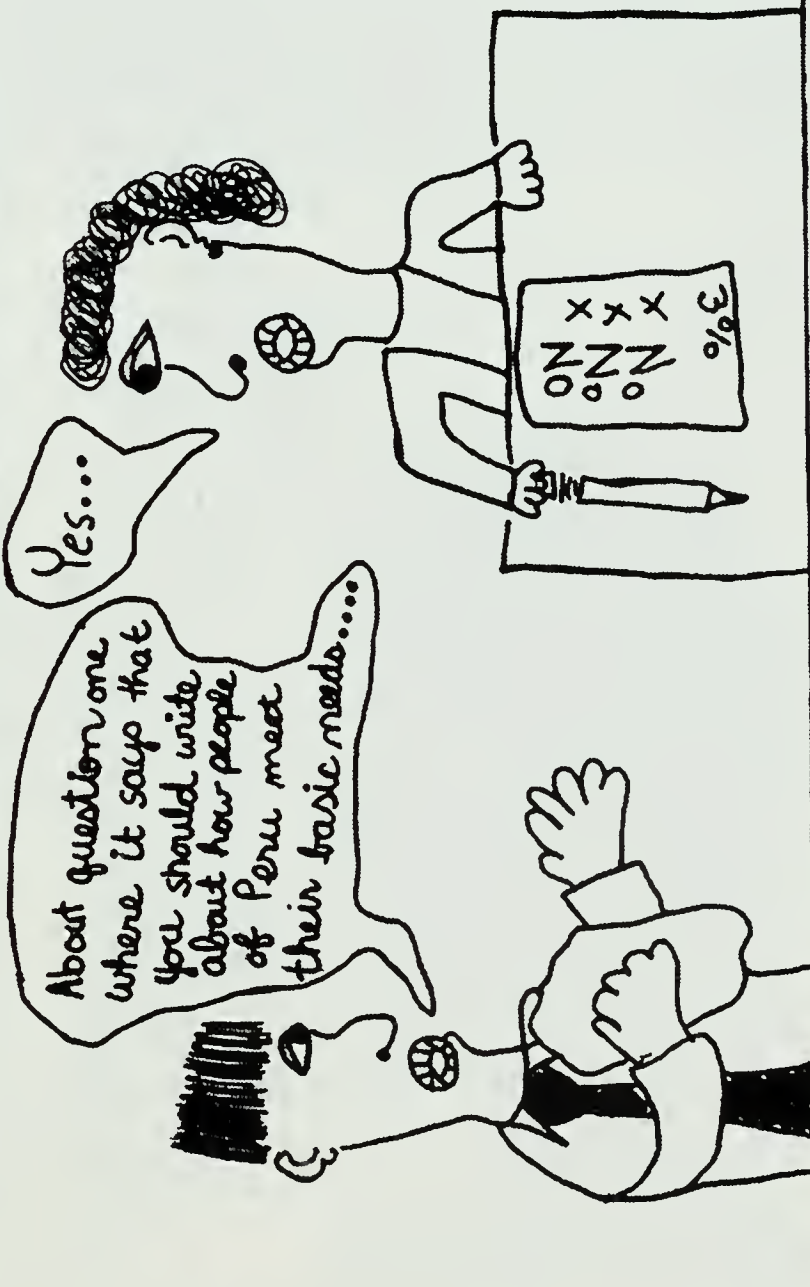 About question one
where it says that
you should write
about how people
of Peru meet
their basic needs.....
Yes...
3%
x No
x No
x NO